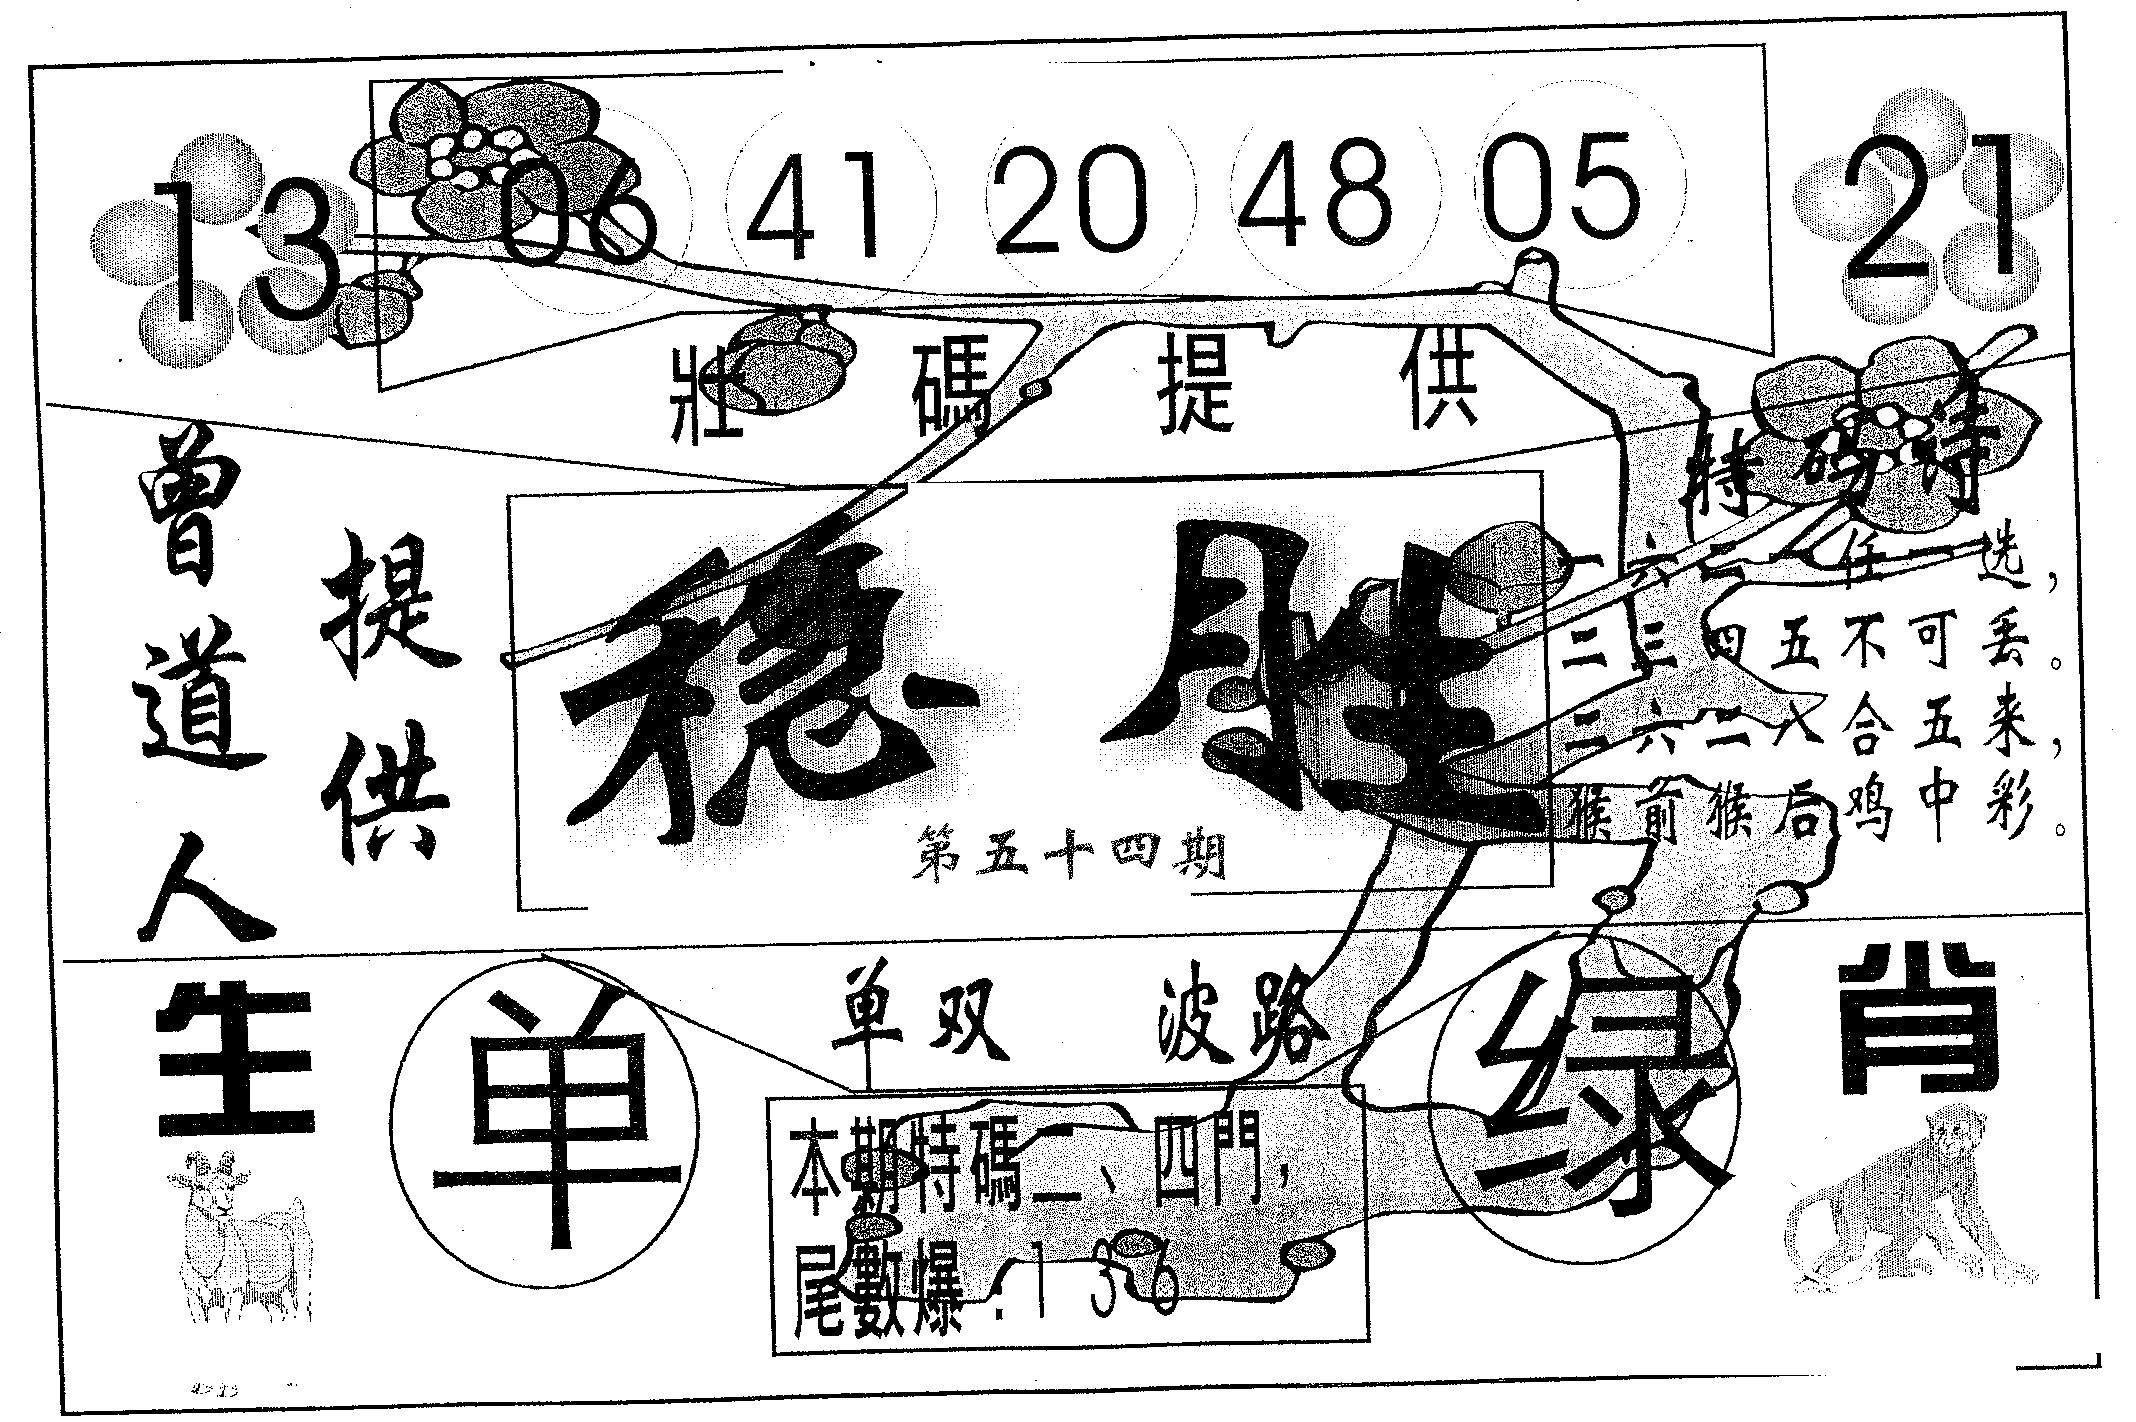 13 06 41 20 48 05 21
壯碼提供
曾道人
提供
稳胜
第五十四期
特码诗
一六二一任一选，
二三四五不可丢。
三六二八合五来，
猴前猴后鸡中彩。
生肖
单
单双 波路
绿
本期特碼二、四門，
尾數爆：136